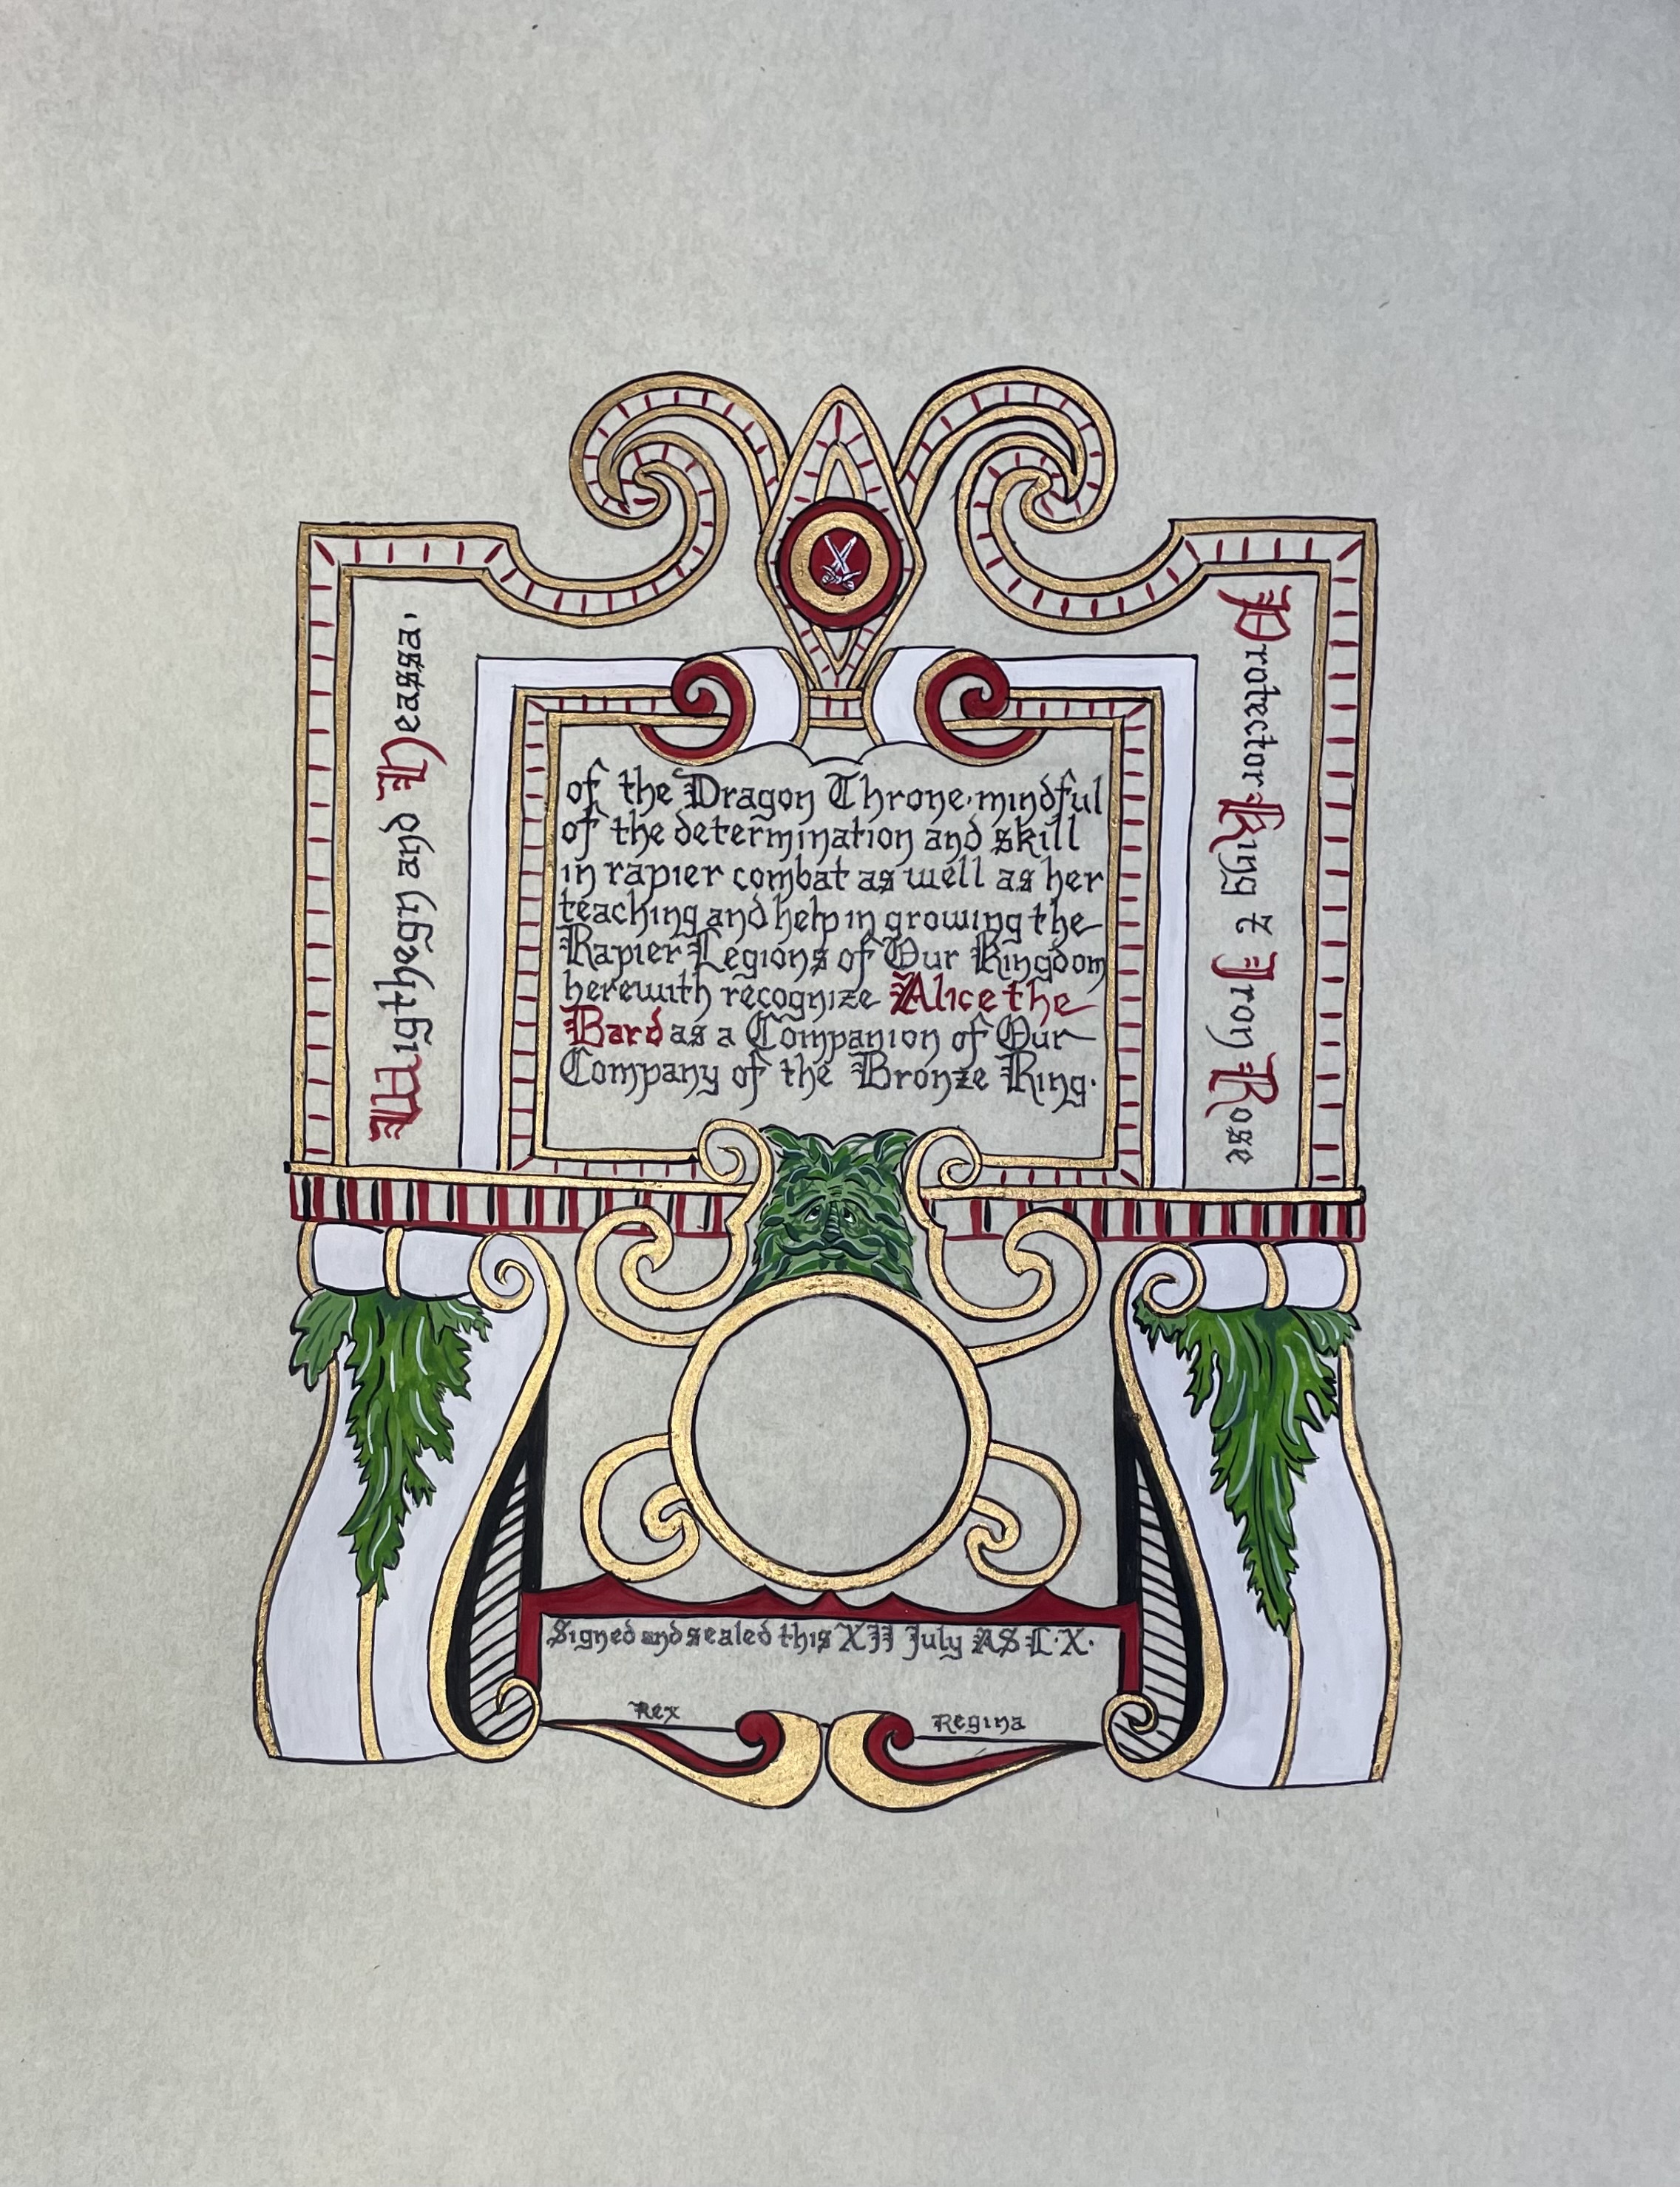 Wigthegn and Heassa,
Protector King & Iron Rose
of the Dragon Throne, mindful
of the determination and skill
in rapier combat as well as her
teaching and help in growing the
Rapier Legions of Our Kingdom
herewith recognize Alice the
Bard as a Companion of Our
Company of the Bronze Ring.
Signed and sealed this XII July AS L.X.
Rex
Regina